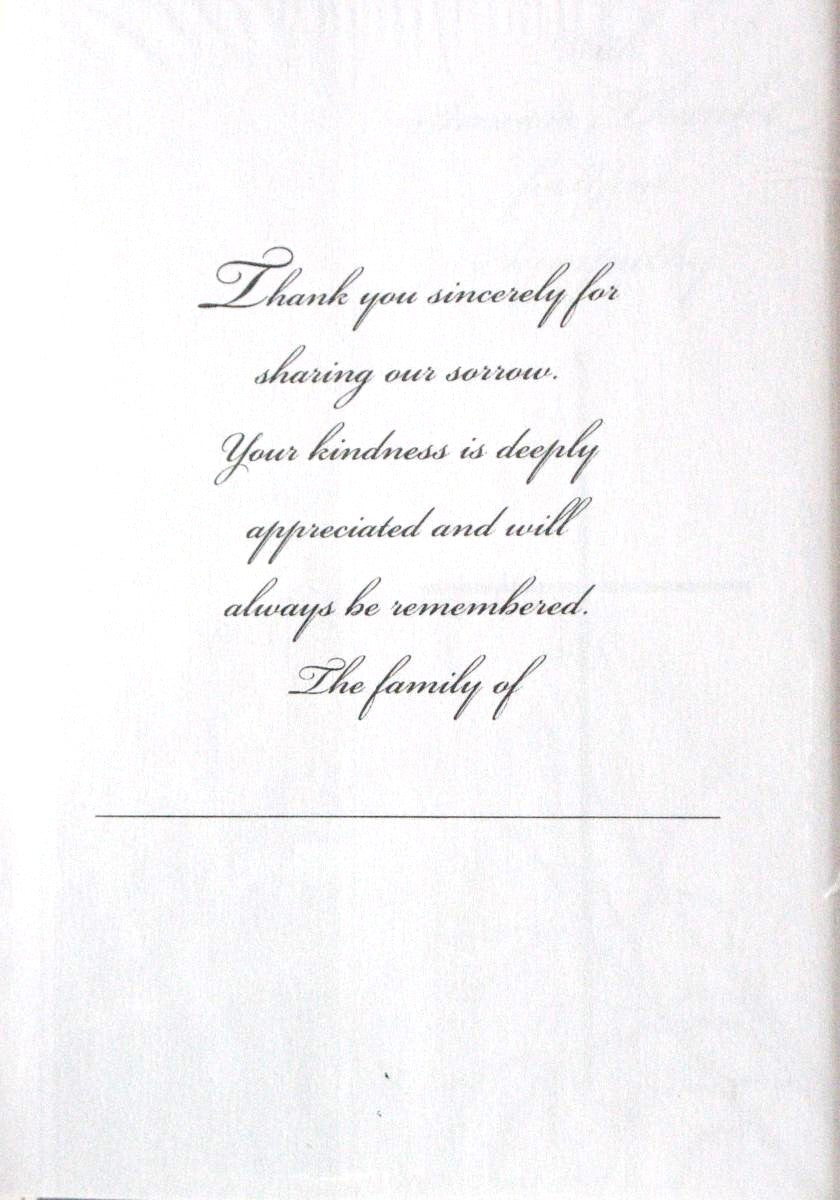 Thank you sincerely for
sharing our sorrow.
Your kindness is deeply
appreciated and will
always be remembered.
The family of